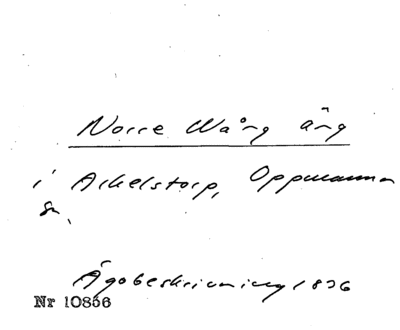 Norre Wång äng
i Arkelstorp, Oppmanna
sn.
Ägobeskrivning 1826
Nr 10866